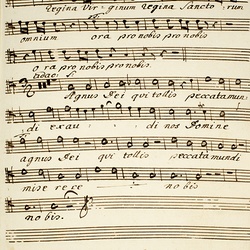 Regina Vir- ginum Regina Sancto- rum
omnium ora pro nobis pro nobis
ora pro nobis pro nobis.
Agnus Dei qui tollis peccata mun-
di exau- di nos Domine
agnus Dei qui tollis peccata mundi
mise re re - no bis
no bis.